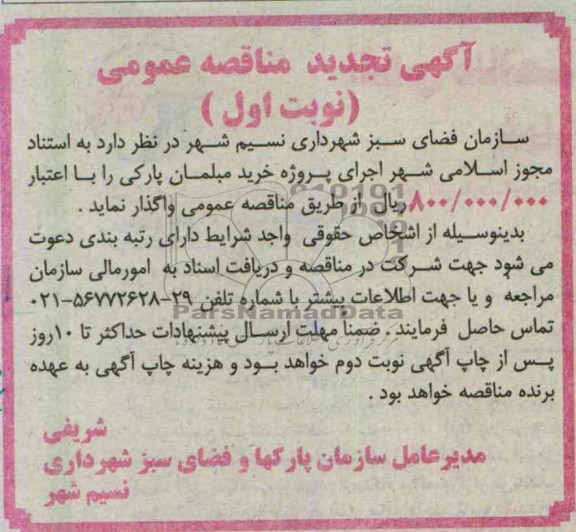 آگهی تجدید مناقصه عمومی
(نوبت اول)
سازمان فضای سبز شهرداری نسیم شهر در نظر دارد به استناد
مجوز اسلامی شهر اجرای پروژه خرید مبلمان پارکی را با اعتبار
۸۰۰/۰۰۰/۰۰۰ریال از طریق مناقصه عمومی واگذار نماید .
بدینوسیله از اشخاص حقوقی واجد شرایط دارای رتبه بندی دعوت
می شود جهت شرکت در مناقصه و دریافت اسناد به امورمالی سازمان
مراجعه و یا جهت اطلاعات بیشتر با شماره تلفن ۲۹-۵۶۷۷۲۶۲۸-۰۲۱
ParsNamadData
تماس حاصل فرمایند . ضمنا مهلت ارسال پیشنهادات حداکثر تا ۱۰روز
پس از چاپ آگهی نوبت دوم خواهد بود و هزینه چاپ آگهی به عهده
برنده مناقصه خواهد بود .
شریفی
مدیرعامل سازمان پارکها و فضای سبز شهرداری
نسیم شهر